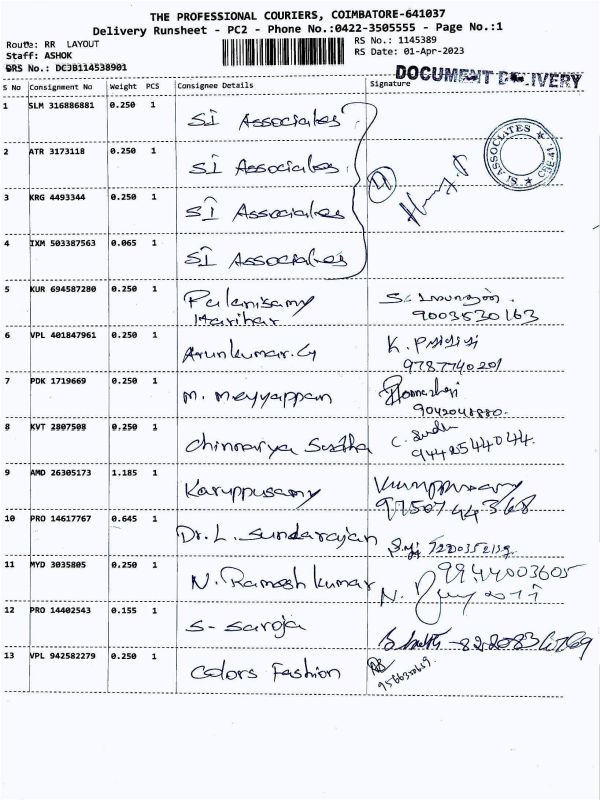 THE PROFESSIONAL COURIERS, COIMBATORE-641037
Delivery Runsheet - PC2 - Phone No.:0422-3505555 - Page No.:1
Route: RR LAYOUT
Staff: ASHOK
DRS No.: DC3B114538901
RS No.: 1145389
RS Date: 01-Apr-2023
DOCUMENT DELIVERY
S No Consignment No Weight PCS Consignee Details Signature
1 SLM 316886881 0.250 1 SI Associates
2 ATR 3173118 0.250 1 SI Associates
3 KRG 4493344 0.250 1 SI Associates
4 IXM 503387563 0.065 1 SI Associates
4
SI ASSOCIATES ★ CBE-41 ★
5 KUR 694587280 0.250 1 Palanisamy
Harihar
9003530163
6 VPL 401847961 0.250 1 Arunkumar.G K.
9787740201
7 PDK 1719669 0.250 1 M. Meyyappan
8 KVT 2807508 0.250 1 Chinnarya Sudha C. Sudha
9442544044.
9 AMD 26305173 1.185 1 Karuppusamy
9750744368
10 PRO 14617767 0.645 1 Dr. L. Sundarajan
11 MYD 3035805 0.250 1 N. Ramesh kumar 9944003605
N.
12 PRO 14402543 0.155 1 S- Saroja
13 VPL 942582279 0.250 1 Colors Fashion